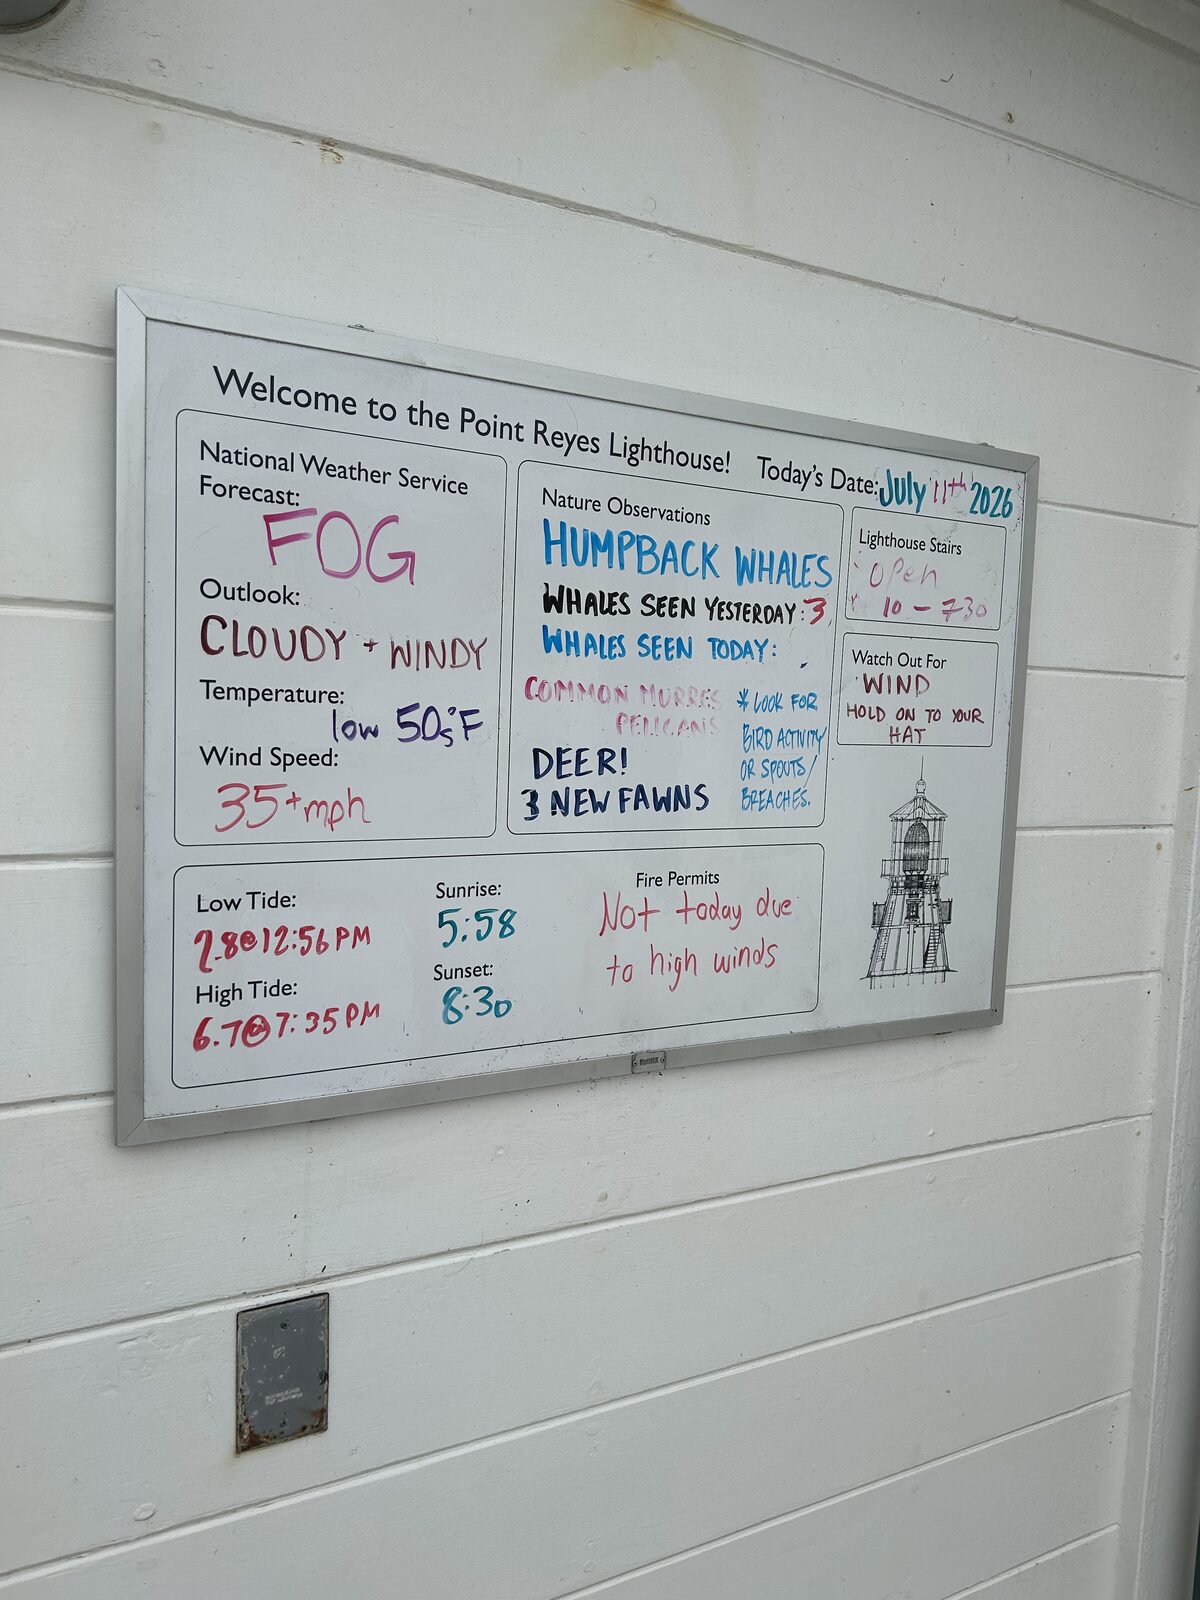 Welcome to the Point Reyes Lighthouse!
Today's Date: July 11th 2026
National Weather Service
Forecast:
FOG
Outlook:
CLOUDY + WINDY
Temperature:
low 50s°F
Wind Speed:
35+mph
Nature Observations
HUMPBACK WHALES
WHALES SEEN YESTERDAY: 3
WHALES SEEN TODAY:
COMMON MURRES
PELICANS
* LOOK FOR
BIRD ACTIVITY
OR SPOUTS/
BREACHES.
DEER!
3 NEW FAWNS
Lighthouse Stairs
open
10 - 730
Watch Out For
WIND
HOLD ON TO YOUR
HAT
Low Tide:
2.8@12:56PM
High Tide:
6.7@7:35PM
Sunrise:
5:58
Sunset:
8:30
Fire Permits
Not today due
to high winds